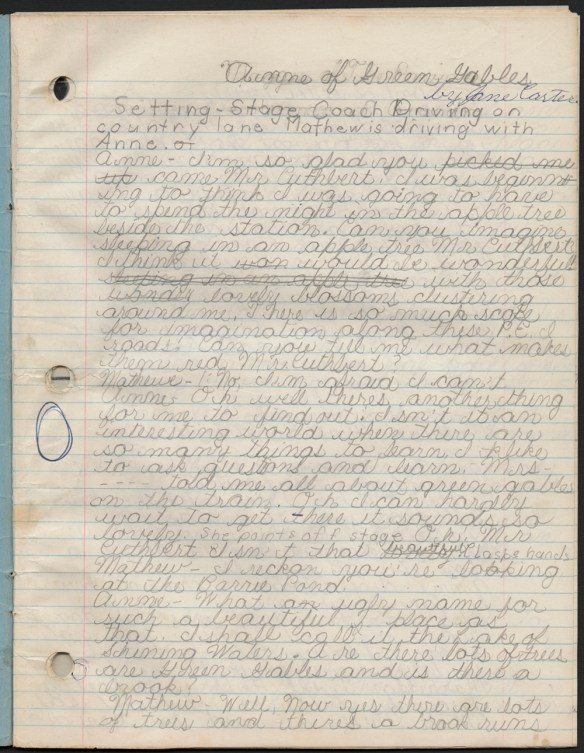 Anne of Green Gables
by Jane Carter
Setting - Stage Coach Driving on
country lane Mathew is driving with
Anne.
Anne - I'm so glad you picked me
up came Mr Cuthbert. I was beginn
ing to think I was going to have
to spend the night in the apple tree
beside the station. Can you imagine
sleeping in an apple tree Mr Cuthbert
I think it would be wonderful
with those
lovely blossoms clustering
around me. There is so much scope
for imagination along these P.E.I
roads. Can you tell me what makes
them red, Mr Cuthbert?
Mathew - No, I'm afraid I can't
Anne - Oh well theres another thing
for me to find out. Isn't it an
interesting world when there are
so many things to learn. I like
to ask questions and learn. Mrs -
- - - - told me all about green gables
on the train. Oh I can hardly
wait to get there it sounds so
lovely. She points off stage Oh, Mr
Cuthbert Isn't that beautiful clasps hands
Mathew - I reckon you're looking
at the Barrie Pond
Anne - What an ugly name for
such a beautiful place as
that. I shall call it the Lake of
Shining Waters. Are there lots of trees
are Green Gables and is there a
brook?
Mathew - Well, Now yes there are lots
of trees and there's a brook runs